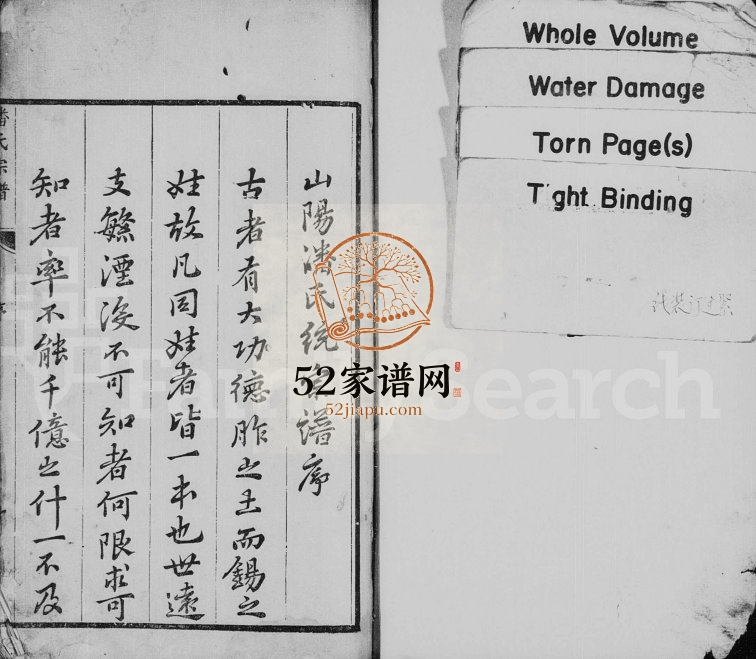 山陽潘氏統宗譜序
古者有大功德胙之土而錫之
姓故凡同姓者皆一本也世遠
支繁湮沒不可知者何限求可
知者率不能千億之什一不及
潘氏宗譜
序
Whole Volume
Water Damage
Torn Page(s)
Tight Binding
代裝訂過緊
52家谱网
52jiapu.com
FamilySearch